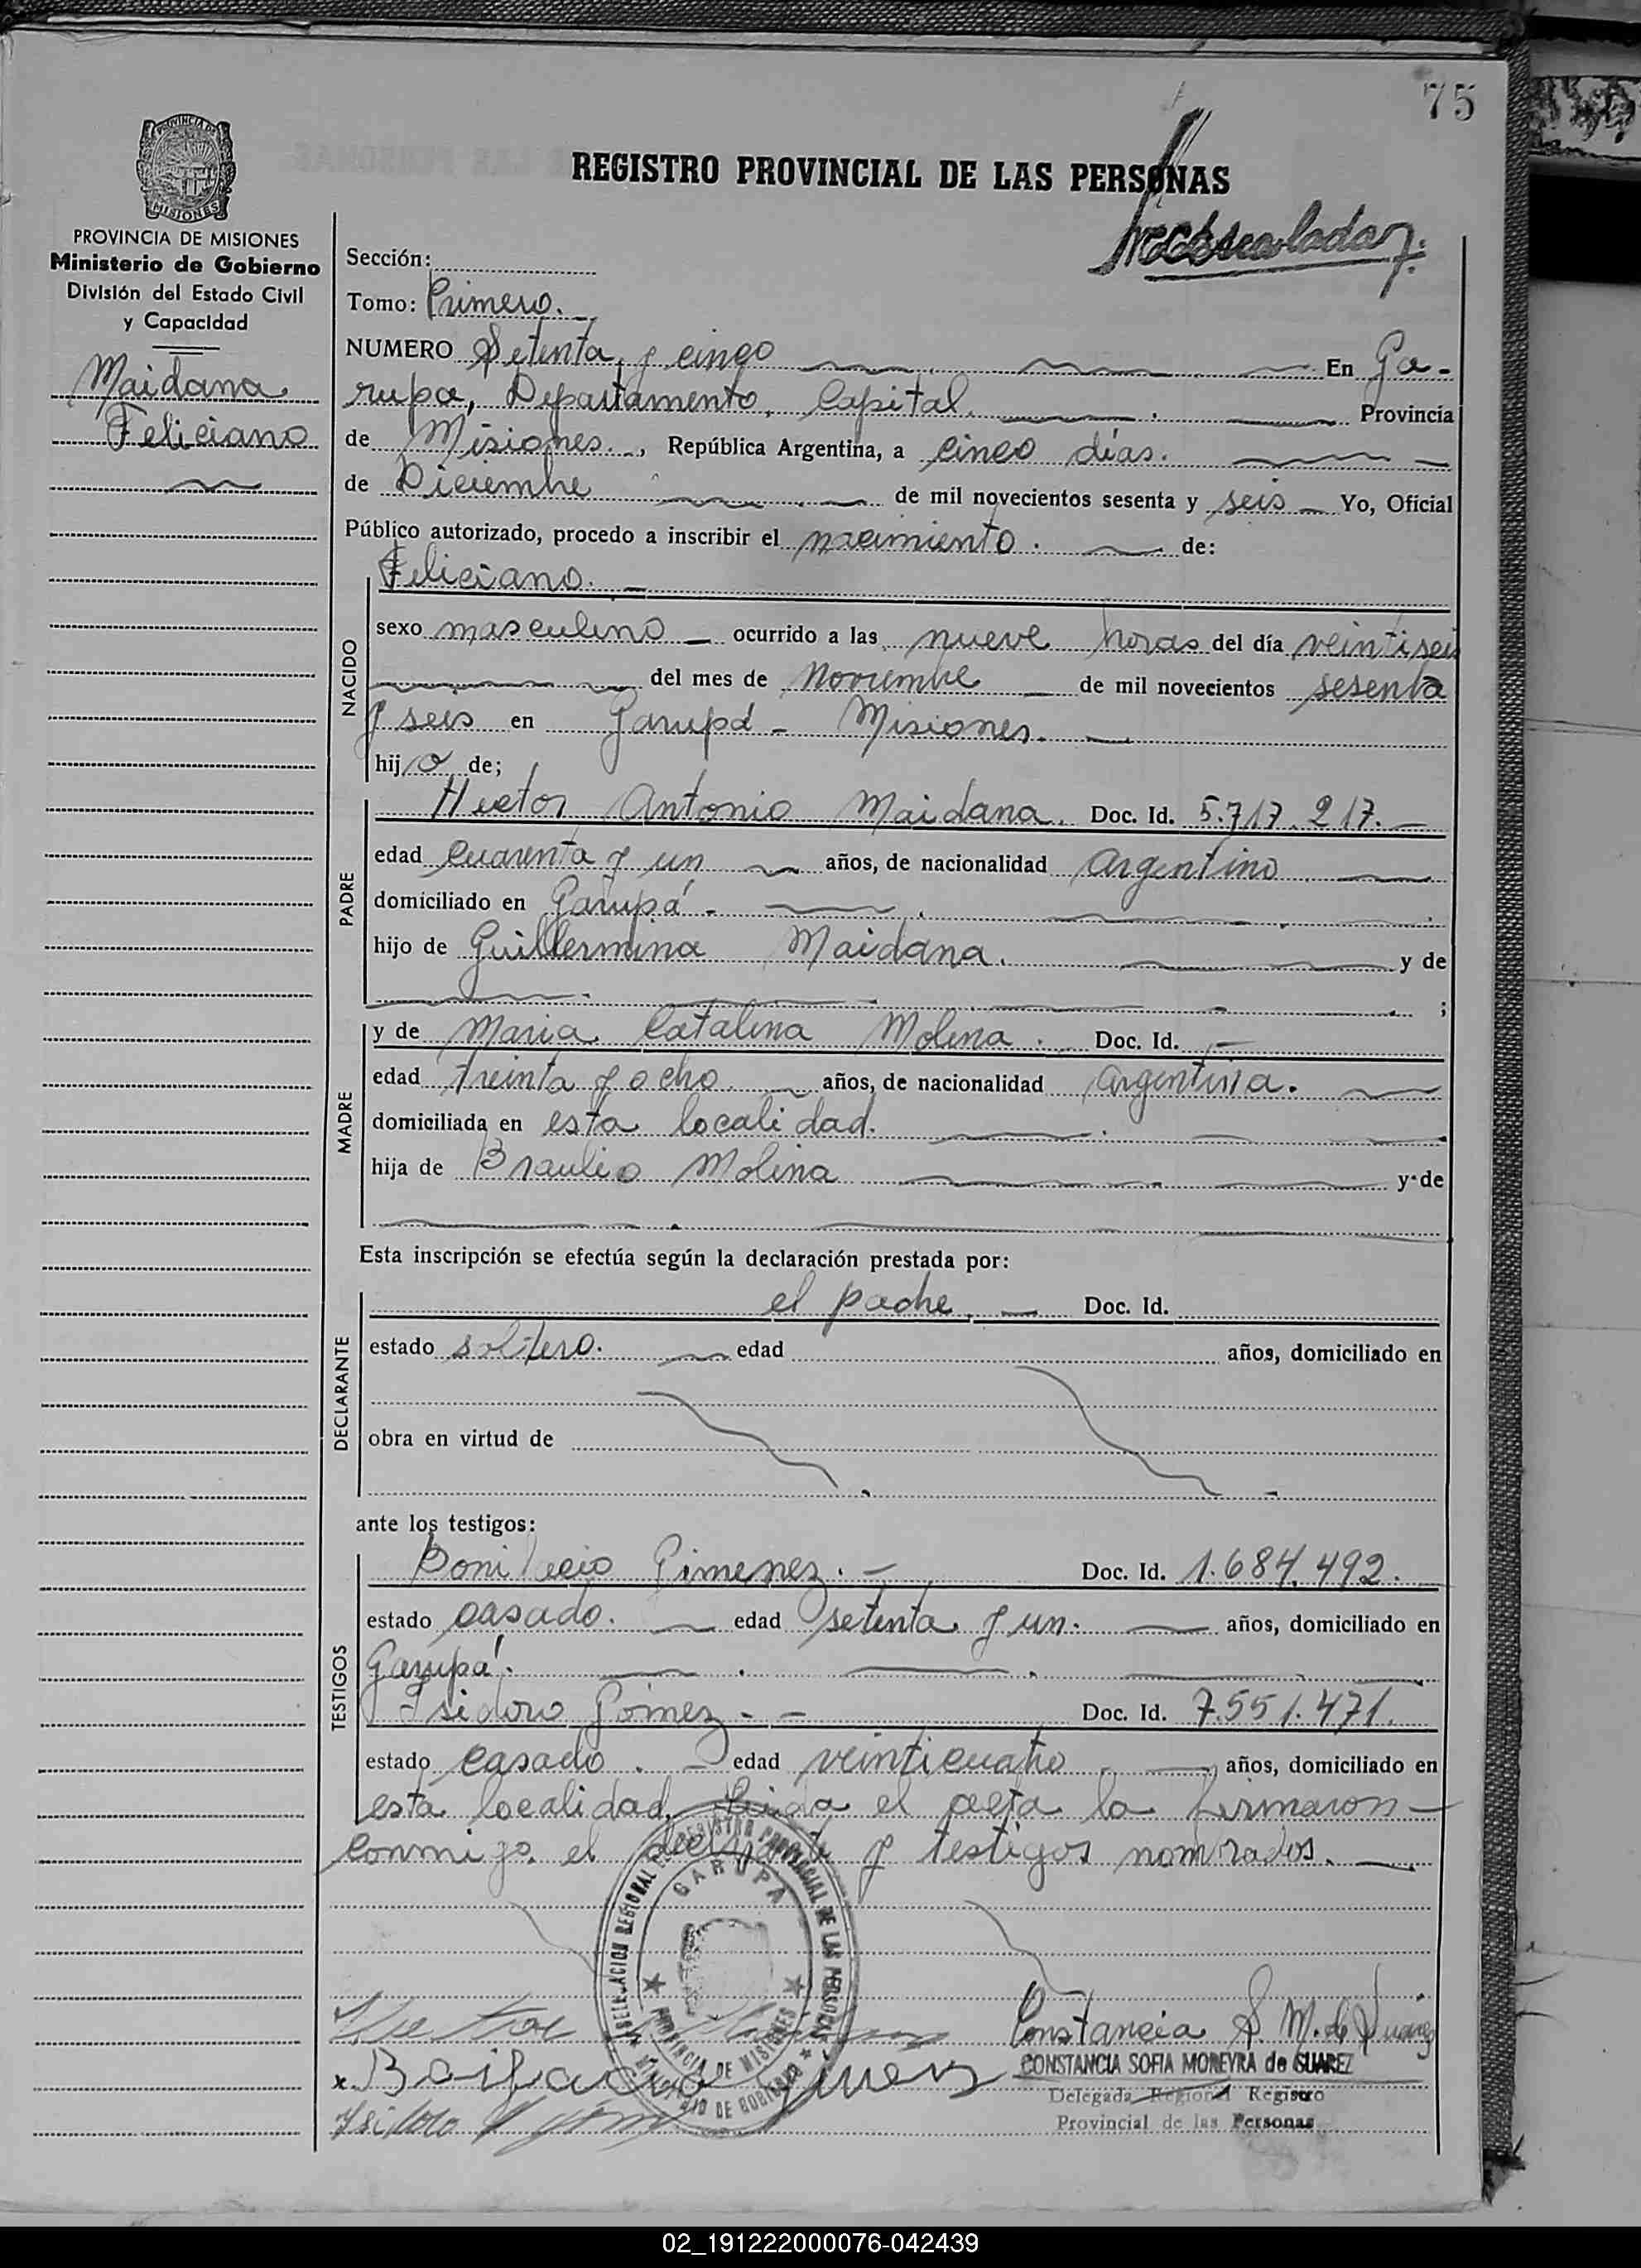 75
PROVINCIA DE
MISIONES
REGISTRO PROVINCIAL DE LAS PERSONAS
PROVINCIA DE MISIONES
Ministerio de Gobierno
División del Estado Civil
y Capacidad
Maidana
Feliciano
Sección:
Tomo: Primero.
NUMERO Setenta y cinco En Ga-
rupa, Departamento Capital. Provincia
de Misiones., República Argentina, a cinco días.
de Diciembre de mil novecientos sesenta y seis Yo, Oficial
Público autorizado, procedo a inscribir el nacimiento. de:
NACIDO
Feliciano.
sexo masculino ocurrido a las nueve horas del día veintiseis
del mes de Noviembre de mil novecientos sesenta
y seis en Garupá - Misiones.
hijo de;
PADRE
Hector Antonio Maidana. Doc. Id. 5.717.217.
edad cuarenta y un años, de nacionalidad argentino
domiciliado en Garupá.
hijo de Guillermina Maidana. y de
;
MADRE
y de Maria Catalina Molina. Doc. Id.
edad treinta y ocho años, de nacionalidad argentina.
domiciliada en esta localidad.
hija de Braulio Molina y de
Esta inscripción se efectúa según la declaración prestada por:
DECLARANTE
el padre. Doc. Id.
estado soltero. edad años, domiciliado en
obra en virtud de
ante los testigos:
TESTIGOS
Bonifacio Gimenez. Doc. Id. 1.684.492.
estado casado. edad setenta y un. años, domiciliado en
Garupá.
Isidoro Gómez. Doc. Id. 7.551.471.
estado casado. edad veinticuatro años, domiciliado en
esta localidad. Leida el acta la firmaron
conmigo el declarante y testigos nombrados.
REGISTRO PROVINCIAL DE LAS PERSONAS
GARUPA
PROVINCIA DE MISIONES
MINISTERIO DE GOBIERNO
Constancia S. M. de Suarez
CONSTANCIA SOFIA MOREYRA de SUAREZ
Delegada Regional Registro
Provincial de las Personas
x. Boifacio
Isidoro
02_191222000076-042439